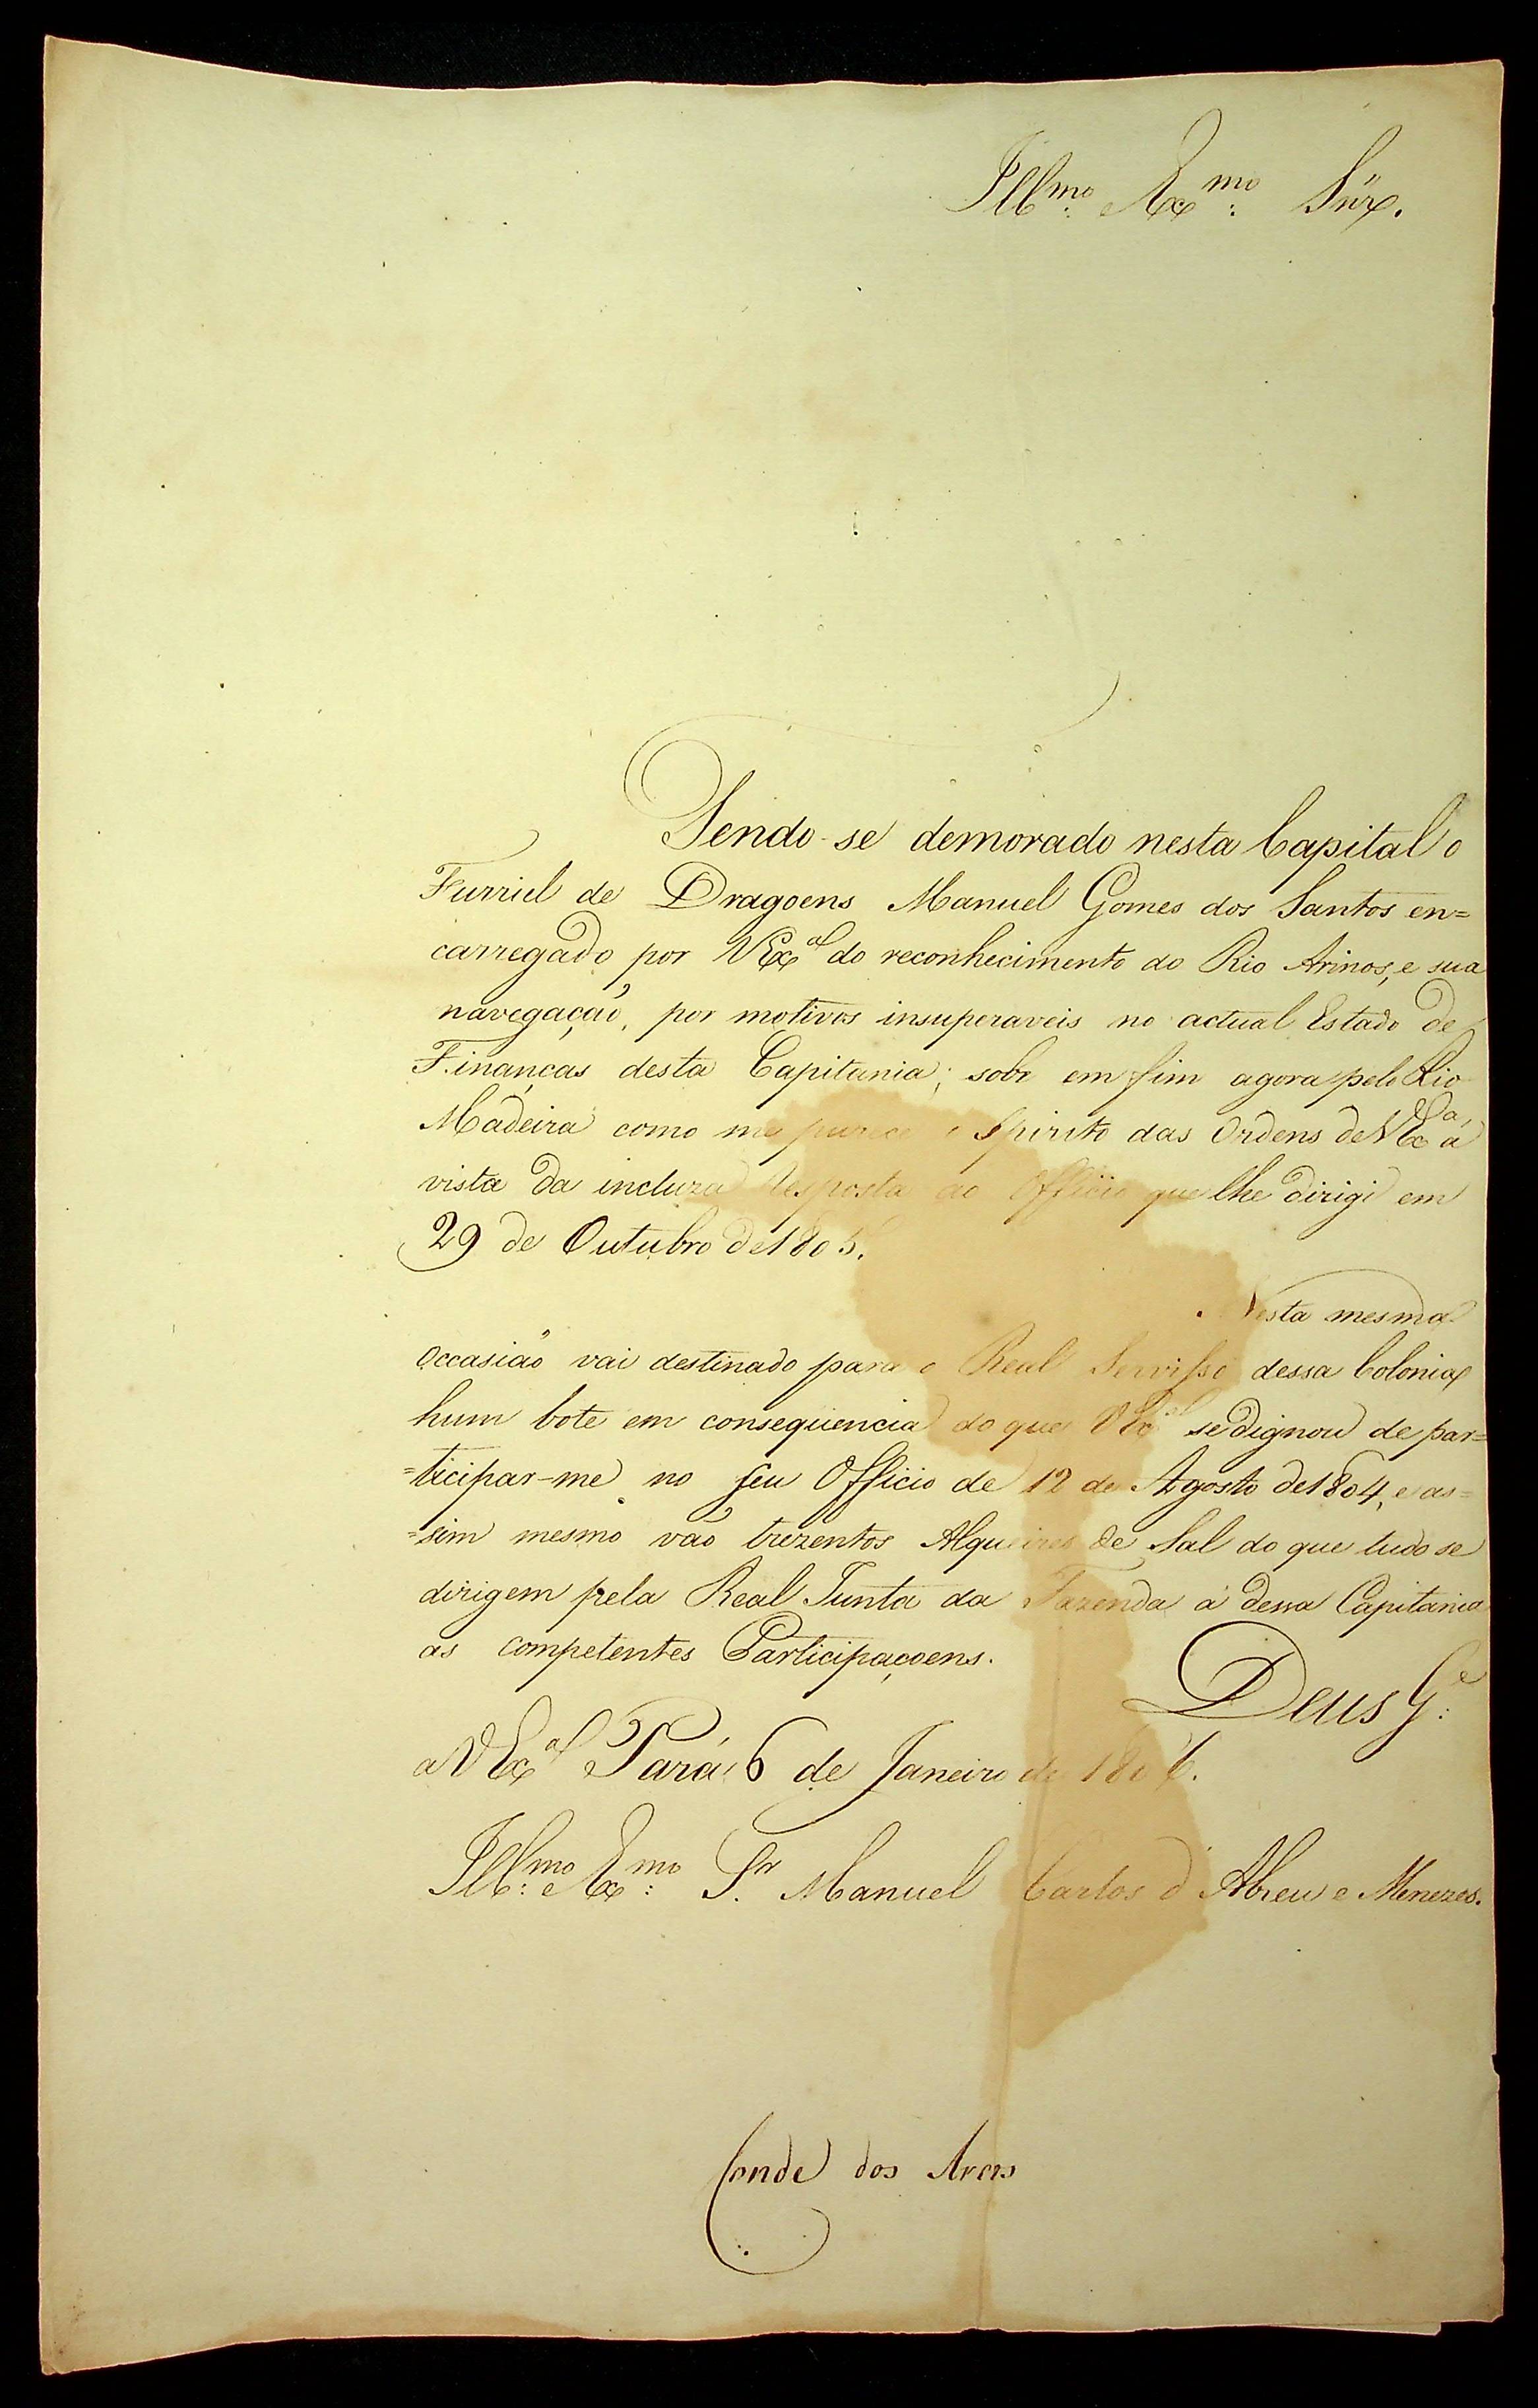 Ill.mo e Ex.mo Snr.
Tendo-se demorado nesta Capital o
Furriel de Dragoens Manuel Gomes dos Santos en=
carregado por VExª do reconhecimento do Rio Arinos, e sua
navegação, por motivos insuperaveis no actual Estado de
Finanças desta Capitania; sobe em fim agora pelo Rio
Madeira como me parece o Spirito das Ordens de VExª, á
vista da incluza Resposta ao Officio que lhe dirigi em
29 de Outubro de 1805.
Nesta mesma
occasião vai destinado para o Real Servisso dessa Colonia
hum bote em consequencia do que VExª se dignou de par=
=ticipar-me no seu Officio de 12 de Agosto de 1804, e as=
=sim mesmo vão trezentos Alqueires de Sal do que tudo se
dirigem pela Real Junta da Fazenda á dessa Capitania
as competentes Participaçoens.
Deus G.e
a VExª Pará 6 de Janeiro de 1806.
Ill.mo e Ex.mo S.r Manuel Carlos d'Abreu e Menezes.
Conde dos Arcos